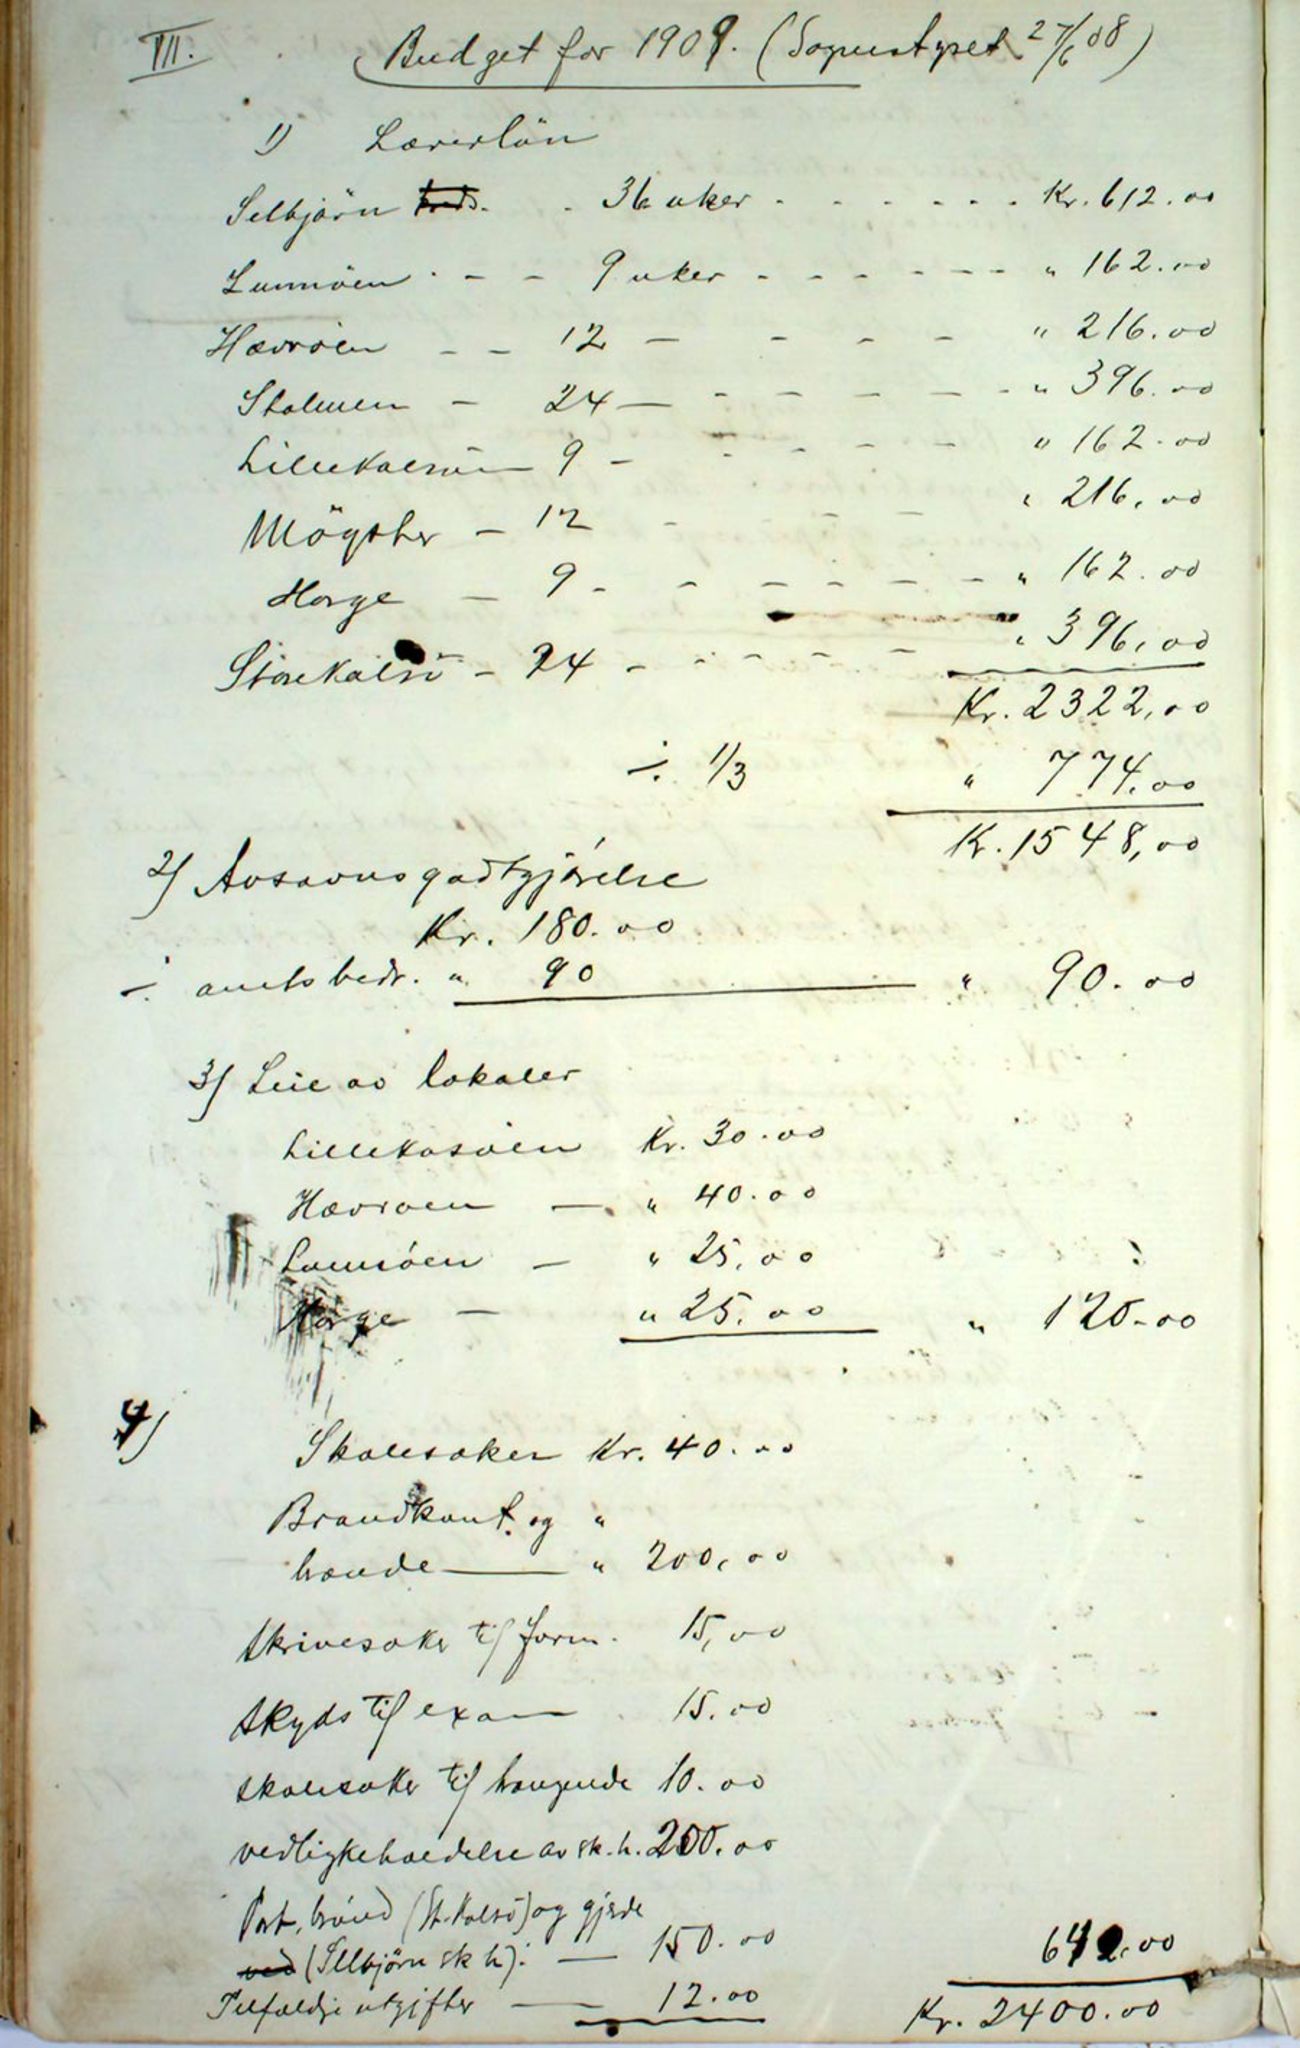 VII. Budget for 1909. (Sognestyret 27/6 08)
1) Lærerlön
Selbjörn - 36 uker - - - - - - Kr. 612.00
Lunnöen - - - 9 uker - - - - - - " 162.00
Hævröen - - 12 - - - - " 216.00
Stolmen - 24 - - - - - - " 396.00
Lillekalsöen 9 - - - - " 162.00
Mögster - 12 - - - " 216,00
Horge - 9 - - - - - - " 162.00
Storekalsö - 24 - - - - - " 396,00
Kr. 2322,00
÷ 1/3 " 774,00
Kr. 1548,00
2) Avsavnsgodtgjörelse
Kr. 180.00
÷ amtsbidr. " 90 " 90.00
3) Leie av lokaler
Lillekasöen Kr. 30.00
Hævroen — " 40.00
Lunnöen — " 25,00
Horge — " 25.00 " 120.00
4)
Skolesaker Kr. 40.00
Brandkont. og "
brænde — " 200,00
skrivesaker til form. 15,00
skyds til exam 15.00
skolesaker til trængende 10.00
vedlikeholdelse av sk.h. 200.00
Port, brönd (St. Kalsö) og gjerde
ved (Selbjörn sk h): — 150.00 642.00
Tilfældige utgifter — 12.00
Kr. 2400.00